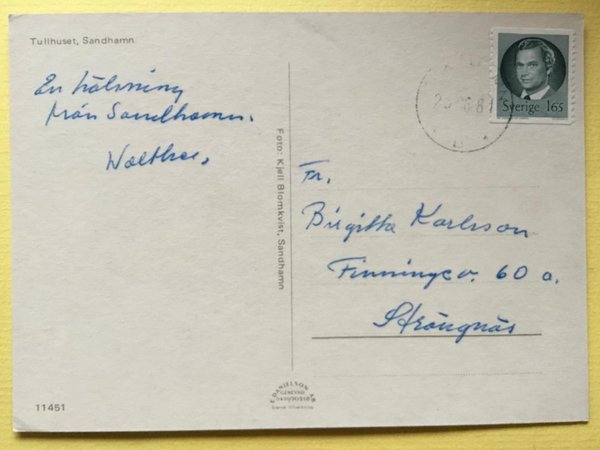 Tullhuset, Sandhamn
En hälsning
från Sandhamn.
Walther.
Foto: Kjell Blomkvist, Sandhamn
Sverige 165
Fr.
Birgitta Karlsson
Finningev. 60 a.
Strängnäs
E. DANIELSON AB
11451